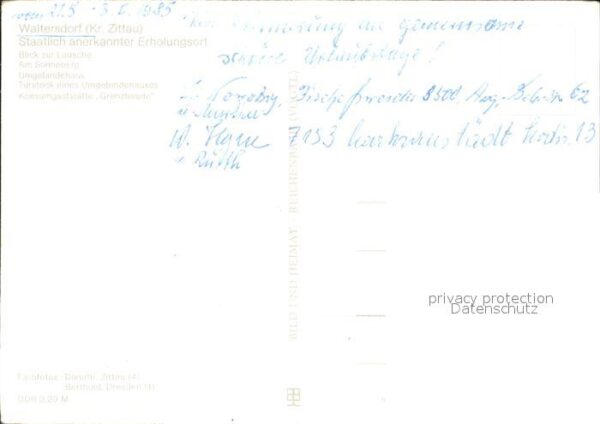 vom 21.5 - 3.6.1985
Zur Erinnerung an gemeinsame
schöne Urlaubstage!
Waltersdorf (Kr. Zittau)
Staatlich anerkannter Erholungsort
Blick zur Lausche
Am Sonneberg
Umgebindehaus
Türstock eines Umgebindehauses
Konsumgaststätte „Grenzbaude“
Bischofswerda 8500, Aug.-Bebel-Str. 62
W.
u. Ruth
7153 Markranstädt 13
BILD UND HEIMAT REICHENBACH (VOGTL)
privacy protection
Datenschutz
Farbfotos: Zittau (4)
Berthold, Dresden (1)
DDR 0,20 M